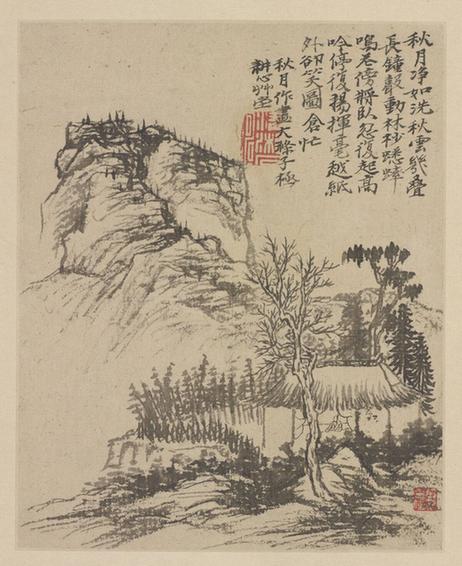 秋月净如洗秋雲幾疊
長鐘聲動林杪蟋蟀
鳴卷傍將臥忽復起高
吟停復揚揮毫越紙
外卻笑圖倉忙
秋月作畫大滌子極
耕心艸堂